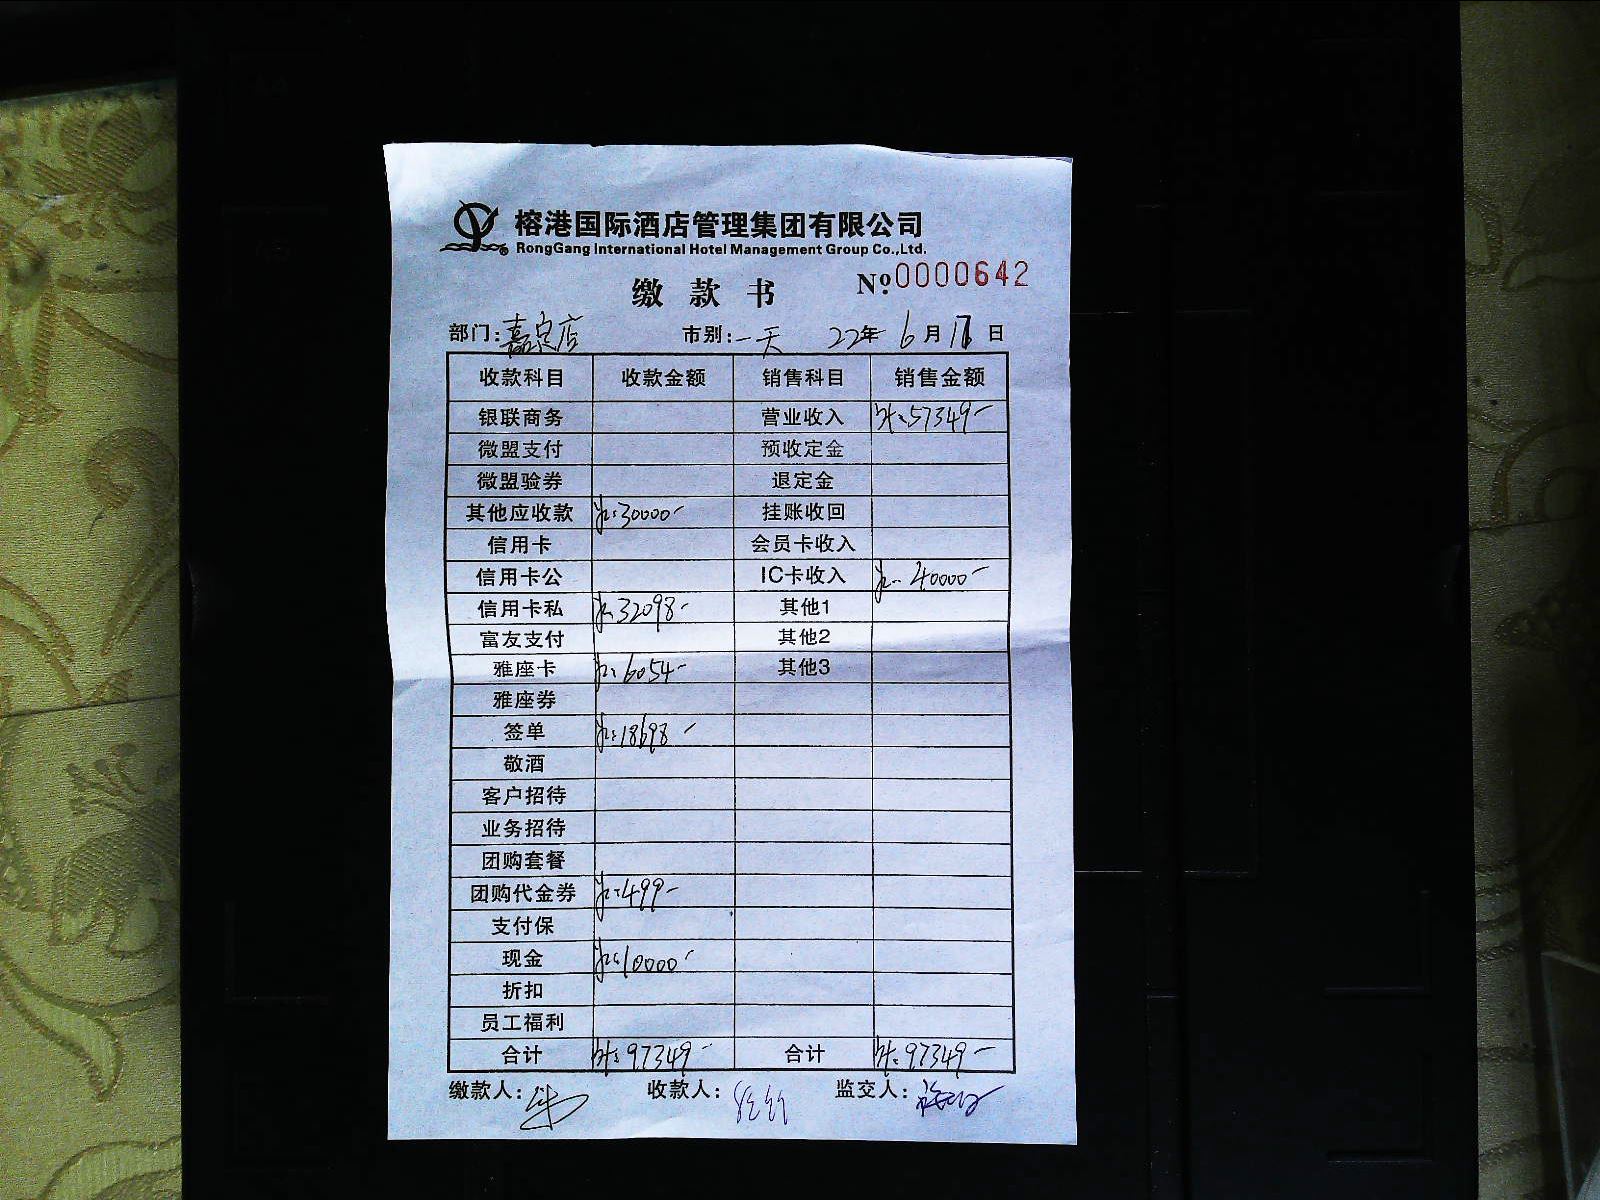 榕港国际酒店管理集团有限公司
RongGang International Hotel Management Group Co.,Ltd.
缴款书 Nº 0000642
部门:嘉定店 市别:一天 22年 6月 17日
收款科目 收款金额 销售科目 销售金额
银联商务 营业收入 57349-
微盟支付 预收定金
微盟验券 退定金
其他应收款 30000- 挂账收回
信用卡 会员卡收入
信用卡公 IC卡收入 40000-
信用卡私 32098- 其他1
富友支付 其他2
雅座卡 6054- 其他3
雅座券
签单 18698-
敬酒
客户招待
业务招待
团购套餐
团购代金券 499-
支付保
现金 10000-
折扣
员工福利
合计 97349- 合计 97349-
缴款人: 收款人: 监交人: